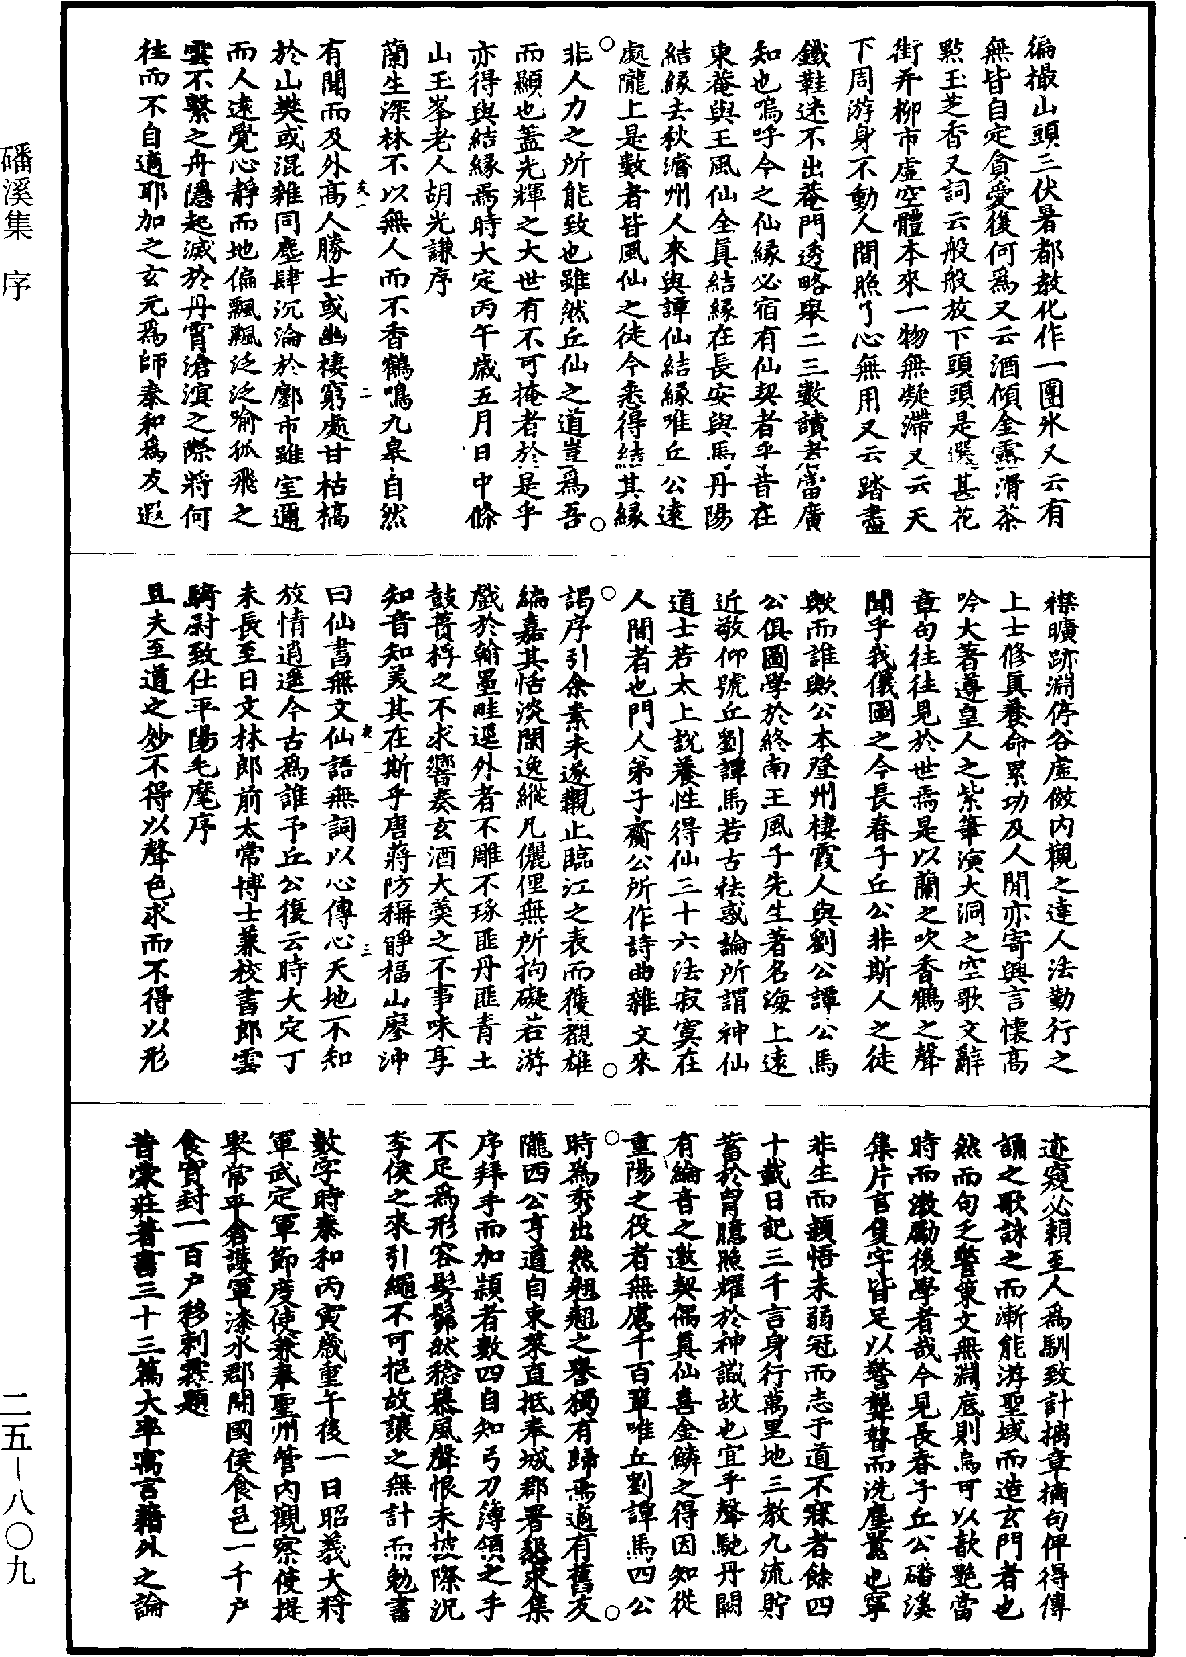 磻溪集 序
徧撮山頭三伏暑都教化作一團氷又云有
無皆自定貪愛後何爲又云酒傾金露滑茶
點玉芝香又詞云般般放下頭頭是選甚花
街并柳市虛空體本來一物無凝滯又云天
下周游身不動人間照了心無用又云踏盡
鐵鞋迷不出菴門透略舉二三數讀者當廣
知也嗚呼今之仙緣必宿有仙契者乎昔在
東菴與王風仙全眞結緣在長安與馬丹陽
結緣去秋濟州人來與譚仙結緣唯丘公遠
處隴上是數者皆風仙之徒今悉得結其緣
非人力之所能致也雖然丘仙之道豈爲吾
而顯也蓋光輝之大世有不可掩者於是乎
亦得與結緣焉時大定丙午歲五月日中條
山玉峯老人胡光謙序
蘭生深林不以無人而不香鶴鳴九皋自然
有聞而及外高人勝士或幽棲窮處甘枯槁
於山樊或混雜同塵肆沉淪於鄽市雖室邇
而人遠覺心靜而地偏飄飄泛泛喻孤飛之
雲不繫之舟隱起滅於丹霄滄溟之際將何
往而不自適耶加之玄元爲師泰和爲友遐
襟曠跡淵停谷虛倣内觀之達人法勤行之
上士修眞養命累功及人閒亦寄興言懷高
吟大著遵皇人之紫筆演大洞之空歌文辭
章句往往見於世焉是以蘭之吹香鶴之聲
聞乎我儀圖之今長春子丘公非斯人之徒
歟而誰歟公本登州棲霞人與劉公譚公馬
公俱圖學於終南王風子先生著名海上遠
近敬仰號丘劉譚馬若古袪惑論所謂神仙
道士若太上說養性得仙三十六法寂寞在
人間者也門人弟子齎公所作詩曲雜文來
謁序引余素未遂觀止臨江之表而獲覩雄
編嘉其恬淡閑逸縱凡儷俚無所拘礙若游
戲於翰墨畦逕外者不雕不琢匪丹匪青土
鼓蕢桴之不求響奏玄酒大羹之不事味享
知音知美其在斯乎唐蔣防稱睜福山廖沖
曰仙書無文仙語無詞以心傳心天地不知
放情逍遙今古爲誰予丘公復云時大定丁
未長至日文林郎前太常博士兼校書郎雲
騎尉致仕平陽毛麾序
且夫至道之妙不得以聲色求而不得以形
迹窺必賴至人爲馴致計摛章摘句俾得傳
誦之歌詠之而漸能游聖域而造玄門者也
然而句乏警策文無淵底則烏可以歆艷當
時而激勵後學者哉今見長春子丘公磻溪
集片言隻字皆足以警聾瞽而洗塵囂也寧
非生而穎悟未弱冠而志于道不寐者餘四
十載日記三千言身行萬里地三教九流貯
蓄於胷臆照耀於神識故也宜乎聲馳丹闕
有綸音之邀契偶眞仙喜金鱗之得因知從
重陽之役者無慮千百輩唯丘劉譚馬四公
時爲秀出然翹翹之譽獨有歸焉適有舊友
隴西公亨道自東萊直抵奉城郡署懇求集
序拜手而加顙者數四自知弓刀簿領之手
不足爲形容髣髴然稔慕風聲恨未披際況
李侯之來引繩不可挹故讓之無計而勉書
數字時泰和丙寅歲重午後一日昭義大將
軍武定軍節度使兼奉聖州管内觀察使提
舉常平倉護軍漆水郡開國侯食邑一千戶
食實封一百戶移剌霖題
昔蒙莊著書三十三篇大率寓言藉外之論
夾一
二
夾一
三
二五–八〇九